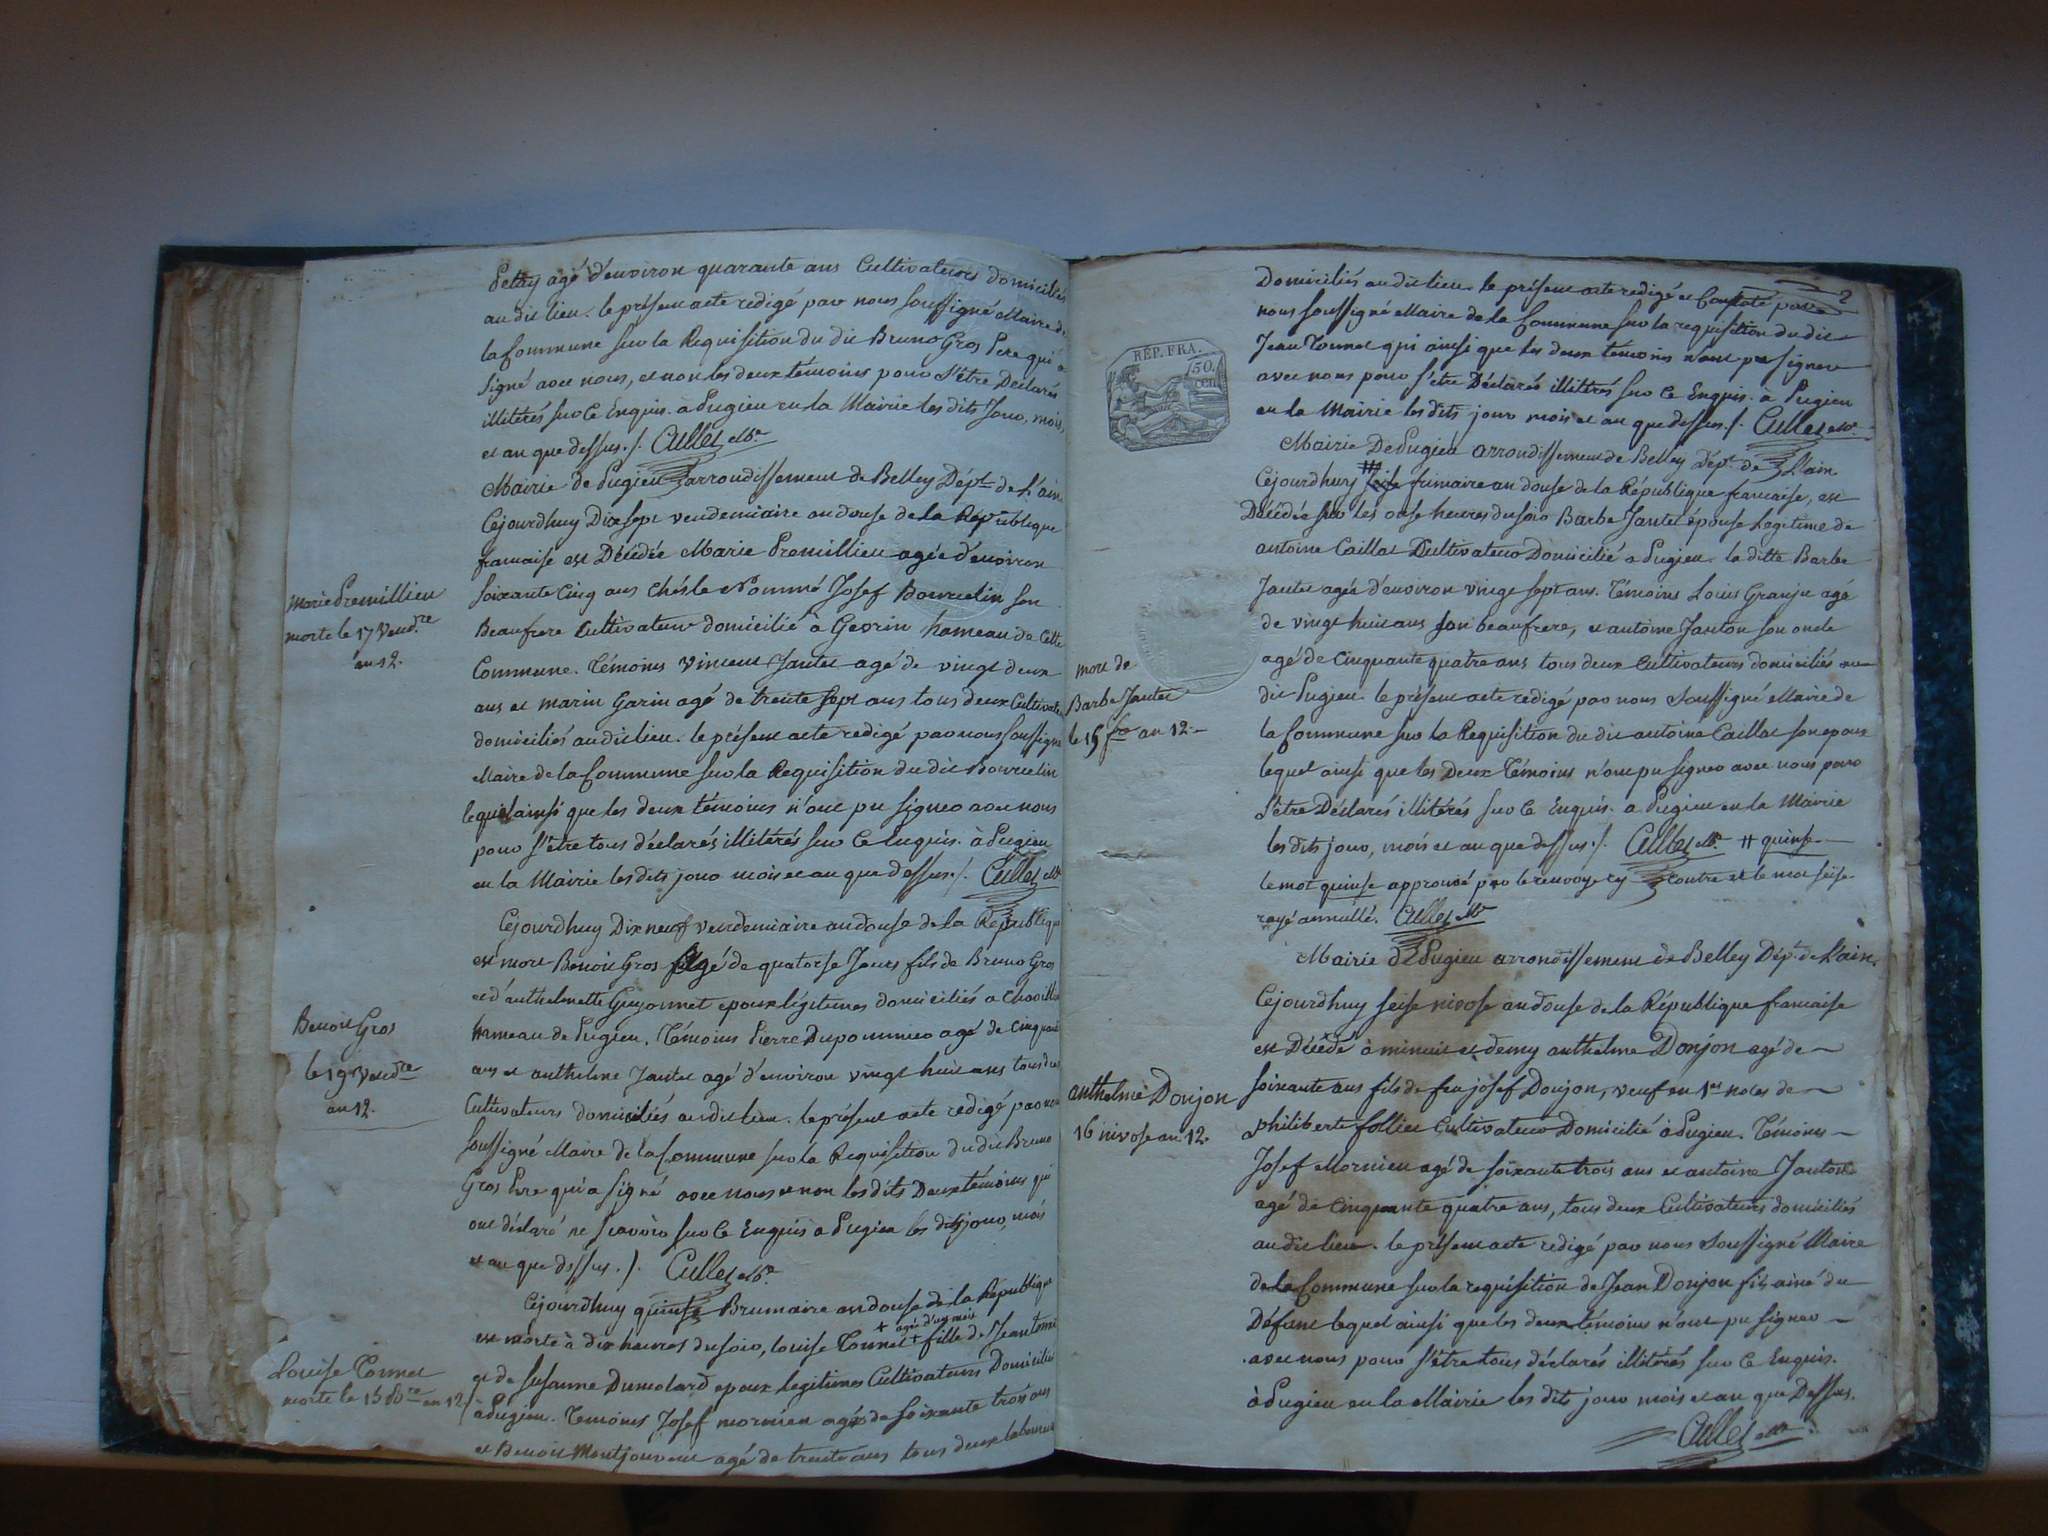 Petay agé d'environ quarante ans Cultivateurs domiciliés
au dit lieu. le présent acte redigé par nous soussigné Maire de
la Commune sur la Requisition du dit Bruno Gros Pere qui a
signé avec nous, et non les deux temoins pour s'être Déclarés
illitérés sur Ce Enquis. à Pugieu en la Mairie les dits Jour, mois
et an que dessus ./. Cullet M.re
Mairie de Pugieu arrondissement de Belley Dép.t de L'ain
Cejourdhuy Dix sept vendemiaire an douse de la République
francaise est Décédée Marie Premillieu agée d'environ
Soixante Cinq ans chés le Nommé Josef Bourcelin son
Beaufrere Cultivateur domicilié à Gevrin hameau de Cette
Commune. Témoins Vincent Jantet agé de vingt deux
ans et marin Garin agé de trente sept ans tous deux Cultivate
domiciliés au dit lieu. le présent acte redigé par nous soussigné
Maire de la Commune sur la Requisition du dit Bourcelin
lequel ainsi que les deux témoins n'ont pu signer avec nous
pour s'être tous déclarés illitérés sur Ce Enquis. à Pugieu
en la Mairie les dits jour mois et an que dessus ./. Cullet M.re
Marie Premillieu
morte le 17 Vend.re
an 12.
Cejourdhuy Dix neuf vendemiaire an douse de la République
est mort Benoit Gros agé de quatorse Jours fils de Bruno Gros
et d'anthelmette Guyonnet epoux légitimes domiciliés a
hameau de Pugieu. Témoins Pierre Duponnier agé de cinquante
ans et anthelme Jantet agé d'environ vingt huit ans tous deux
Cultivateurs domiciliés au dit lieu. le présent acte redigé par nous
soussigné Maire de la Commune sur la Requisition du dit Bruno
Gros Pere qui a signé avec nous et non les dits Deux témoins qui
ont déclaré ne scavoir sur Ce Enquis a Pugieu les dits jour, mois
et an que dessus ./. Cullet M.re
Benoit Gros
le 19 Vend.re
an 12.
Cejourdhuy quinse Brumaire an douse de la République
+ agée d'un mois
est morte à dix heures du soir, louise Tonnet + fille de Jean tonnet
et de Susanne Dumolard epoux legitimes Cultivateurs Domiciliés
à Pugieu. Temoins Josef mornieu agé de soixante trois ans
et Benoit Montjouvent agé de trente ans tous deux laboureurs
Louise Tonnet
morte le 15 B.re an 12
2
Domiciliés au dit lieu. le présent acte redigé et Constaté par
nous soussigné Maire de la Commune sur la requisition du dit
Jean Tonnet qui ainsi que les deux temoins n'ont pu signer
avec nous pour s'être Déclarés illitérés sur Ce Enquis. à Pugieu
en la Mairie les dits jour mois et an que dessus ./. Cullet M.re
RÉP. FRA.
50.
cen
Mairie De Pugieu arrondissement de Belley Dép.t de L'ain
Cejourdhuy # seise frimaire an douse de la République francaise, est
Décédée sur les onse heures du soir Barbe Jantet épouse Legitime de
antoine Caillat Cultivateur Domicilié a Pugieu. la ditte Barbe
Jantet agée d'environ vingt sept ans. Témoins Louis Granju agé
de vingt huit ans son beaufrere, et antoine Janton son oncle
agé de Cinquante quatre ans tous deux Cultivateurs domiciliés au
dit Pugieu. le présent acte redigé par nous soussigné Maire de
la Commune sur la Requisition du dit antoine Caillat son epoux
lequel ainsi que les Deux Témoins n'ont pu signer avec nous pour
s'être Déclarés illitérés sur Ce Enquis. a Pugieu en la Mairie
les dits jour, mois et an que dessus ./. Cullet M.re # quinse
le mot quinse approuvé par le renvoye cy contre et le mot seise
rayé annullé. Cullet M.re
mort de
Barbe Jantet
le 15 f.re an 12.
Mairie De Pugieu arrondissement de Belley Dép.t de L'ain.
Cejourdhuy seise nivose an douse de la République francaise
est Décédé à minuit et demy anthelme Donjon agé de
soixante ans fils de feu josef Donjon, veuf en 1.res noces de
philiberte folliet Cultivateur Domicilié à Pugieu. Témoins
Josef Mornieu agé de soixante trois ans et antoine Janton
agé de Cinquante quatre ans, tous deux Cultivateurs domiciliés
au dit lieu. le présent acte redigé par nous soussigné Maire
de la Commune sur la requisition de Jean Donjon fils ainé du
Défunt lequel ainsi que les deux témoins n'ont pu signer
avec nous pour s'être tous déclarés illitérés sur Ce Enquis.
à Pugieu en la Mairie les dit jour mois et an que Dessus.
Cullet M.re
anthelme Donjon
16 nivose an 12.